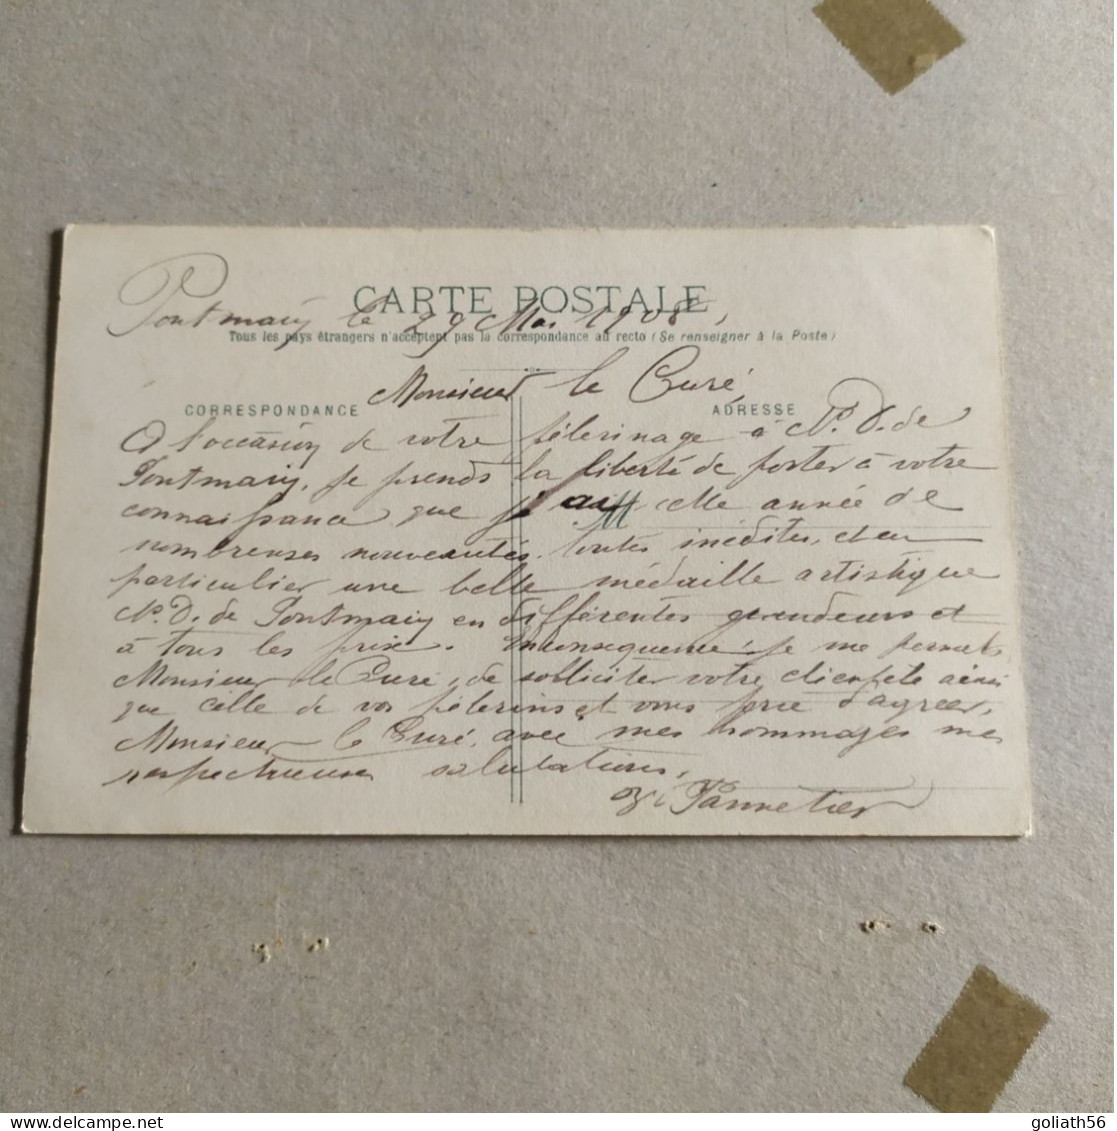 CARTE POSTALE
Pontmain le 29 Mai 1908,
Tous les pays étrangers n'acceptent pas la correspondance au recto (Se renseigner à la Poste)
Monsieur le Curé
CORRESPONDANCE
ADRESSE
A l'occasion de votre pélerinage à N. D. de
Pontmain, je prends la liberté de porter à votre
connaissance que j'ai cette année de
nombreuses nouveautés toutes inédites, et en
particulier une belle médaille artistique
N. D. de Pontmain en différentes grandeurs et
à tous les prix. En conséquence je me permets
Monsieur le Curé, de solliciter votre clientèle ainsi
que celle de vos pélerins et vous prie d'agréer,
Monsieur le Curé, avec mes hommages mes
respectueuses salutations,
Pannetier
goliath56